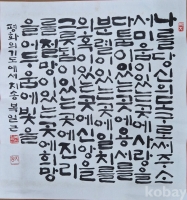 나를당신의도구로써주소
서미움이있는곳에사랑을
다툼이있는곳에용서를
분열이있는곳에일치를
의혹이있는곳에신앙을
그릇됨이있는곳에진리
를절망이있는곳에희망
을어두움에빛을
평화의기도에서
kobay